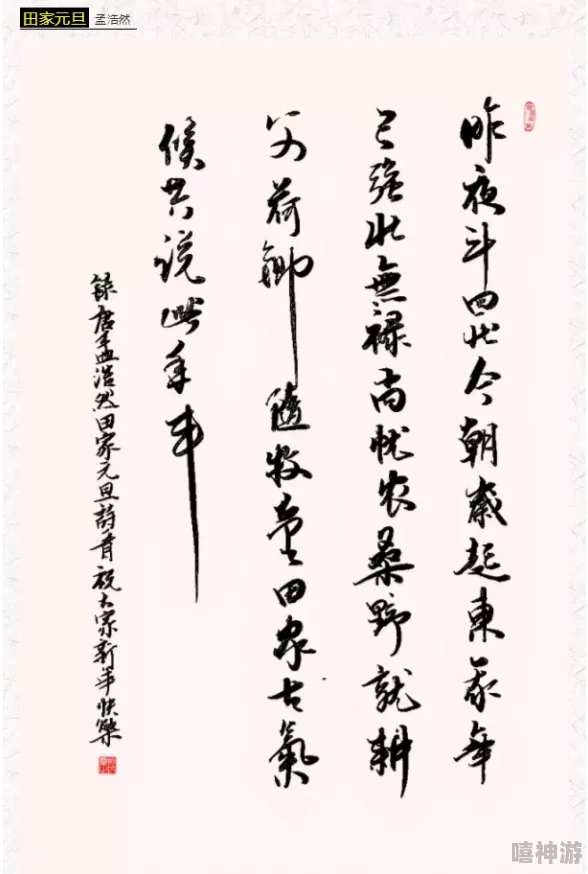 田家元旦 孟浩然
昨夜斗回北今朝歲起東我年
已强壮無禄尚忧农桑野就耕
父荷鋤隨牧童田家占氣
候共说此年丰
録唐孟浩然田家元旦詩首祝大家新年快樂
嘻神游